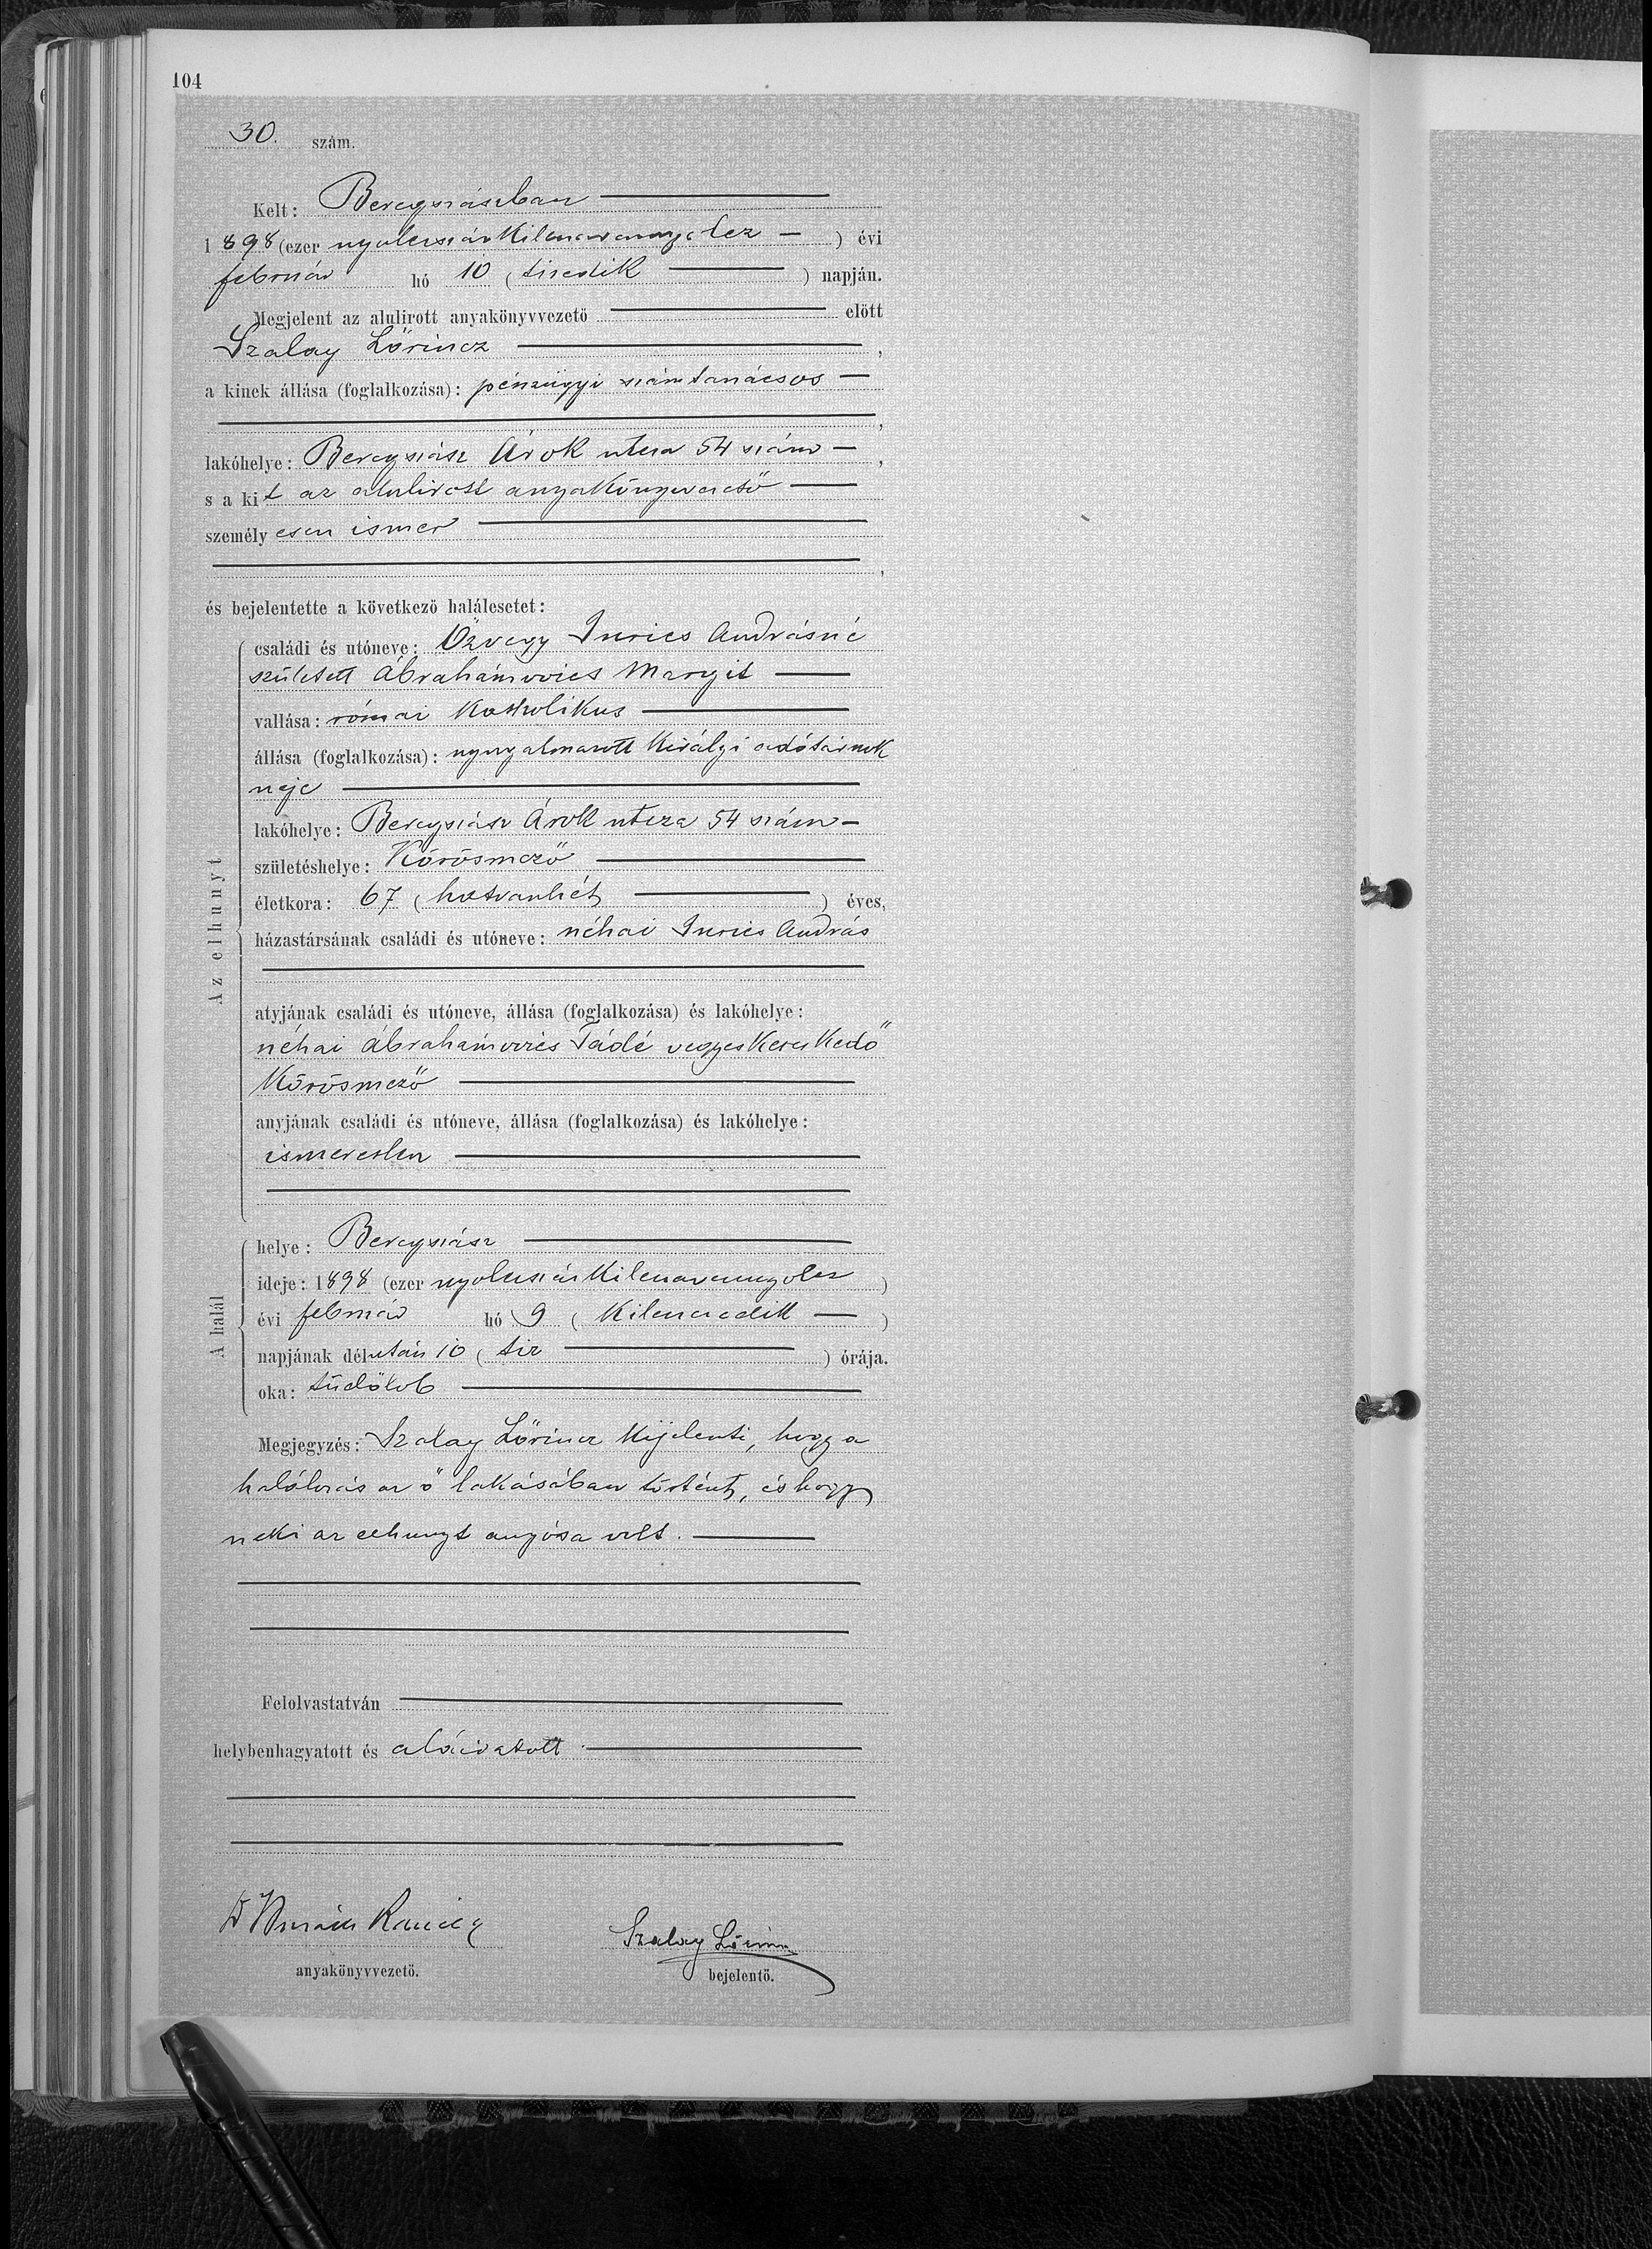 104
30. szám.
Kelt: Beregszászban
1898 (ezer nyolczszázkilenczvennyolcz) évi
február hó 10 (tizedik) napján.
Megjelent az alulirott anyakönyvvezető előtt
Szalay Lőrincz,
a kinek állása (foglalkozása): pénzügyi számtanácsos
,
lakóhelye: Beregszász Árok utcza 54 szám,
s a kit az alulirott anyakönyvvezető
személyesen ismer
,
és bejelentette a következő halálesetet:
Az elhunyt
családi és utóneve: Özvegy Jurics Andrásné
született Ábrahámovics Margit
vallása: római katholikus
állása (foglalkozása): nyugalmazott királyi adótárnok
neje
lakóhelye: Beregszász Árok utcza 54 szám
születéshelye: Kőrösmező
életkora: 67 (hatvanhét) éves,
házastársának családi és utóneve: néhai Jurics András
atyjának családi és utóneve, állása (foglalkozása) és lakóhelye:
néhai Ábrahámovics Tádé vegyeskereskedő
Kőrösmező
anyjának családi és utóneve, állása (foglalkozása) és lakóhelye:
ismeretlen
A halál
helye: Beregszász
ideje: 1898 (ezer nyolczszázkilenczvennyolcz)
évi február hó 9 (kilenczedik)
napjának délután 10 (tiz) órája.
oka: tüdőlob
Megjegyzés: Szalay Lőrincz kijelenti, hogy a
halálozás az ő lakásában történt, és hogy
neki az elhunyt anyósa volt.
Felolvastatván
helybenhagyatott és aláiratott
Dr
Szalay Lőrincz
anyakönyvvezető.
bejelentő.